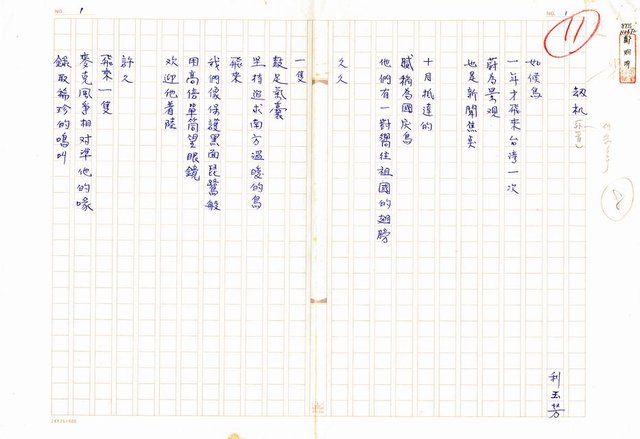 劫机
利玉芳
如候鳥
一年才飛來台湾一次
蔚為景观
也是新聞焦点
十月抵達的
膩稱為國庆鳥
他們有一對嚮往祖國的翅膀
久久
一隻
鼓足氣囊
坚持追求南方溫暖的鳥
飛來
我們像保護黑面琵鷺般
用高倍單筒望眼鏡
欢迎他着陸
許久
飛來一隻
麥克風爭相对準他的喙
錄取稀珍的鳴叫
NO. 1
NO. 1
11
8
24X25=600